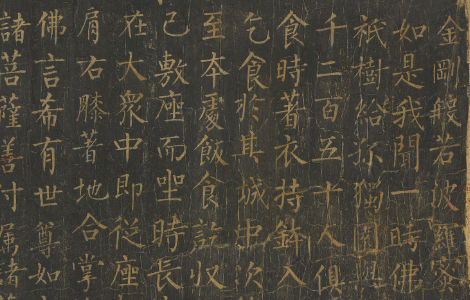 金剛般若波羅蜜
如是我聞一時佛
祇樹給孤獨園與
千二百五十人俱
食時著衣持鉢入
乞食於其城中次
至本處飯食訖収
已敷座而坐時長
在大衆中即從座
肩右膝著地合掌
佛言希有世尊如
諸菩薩善付属諸